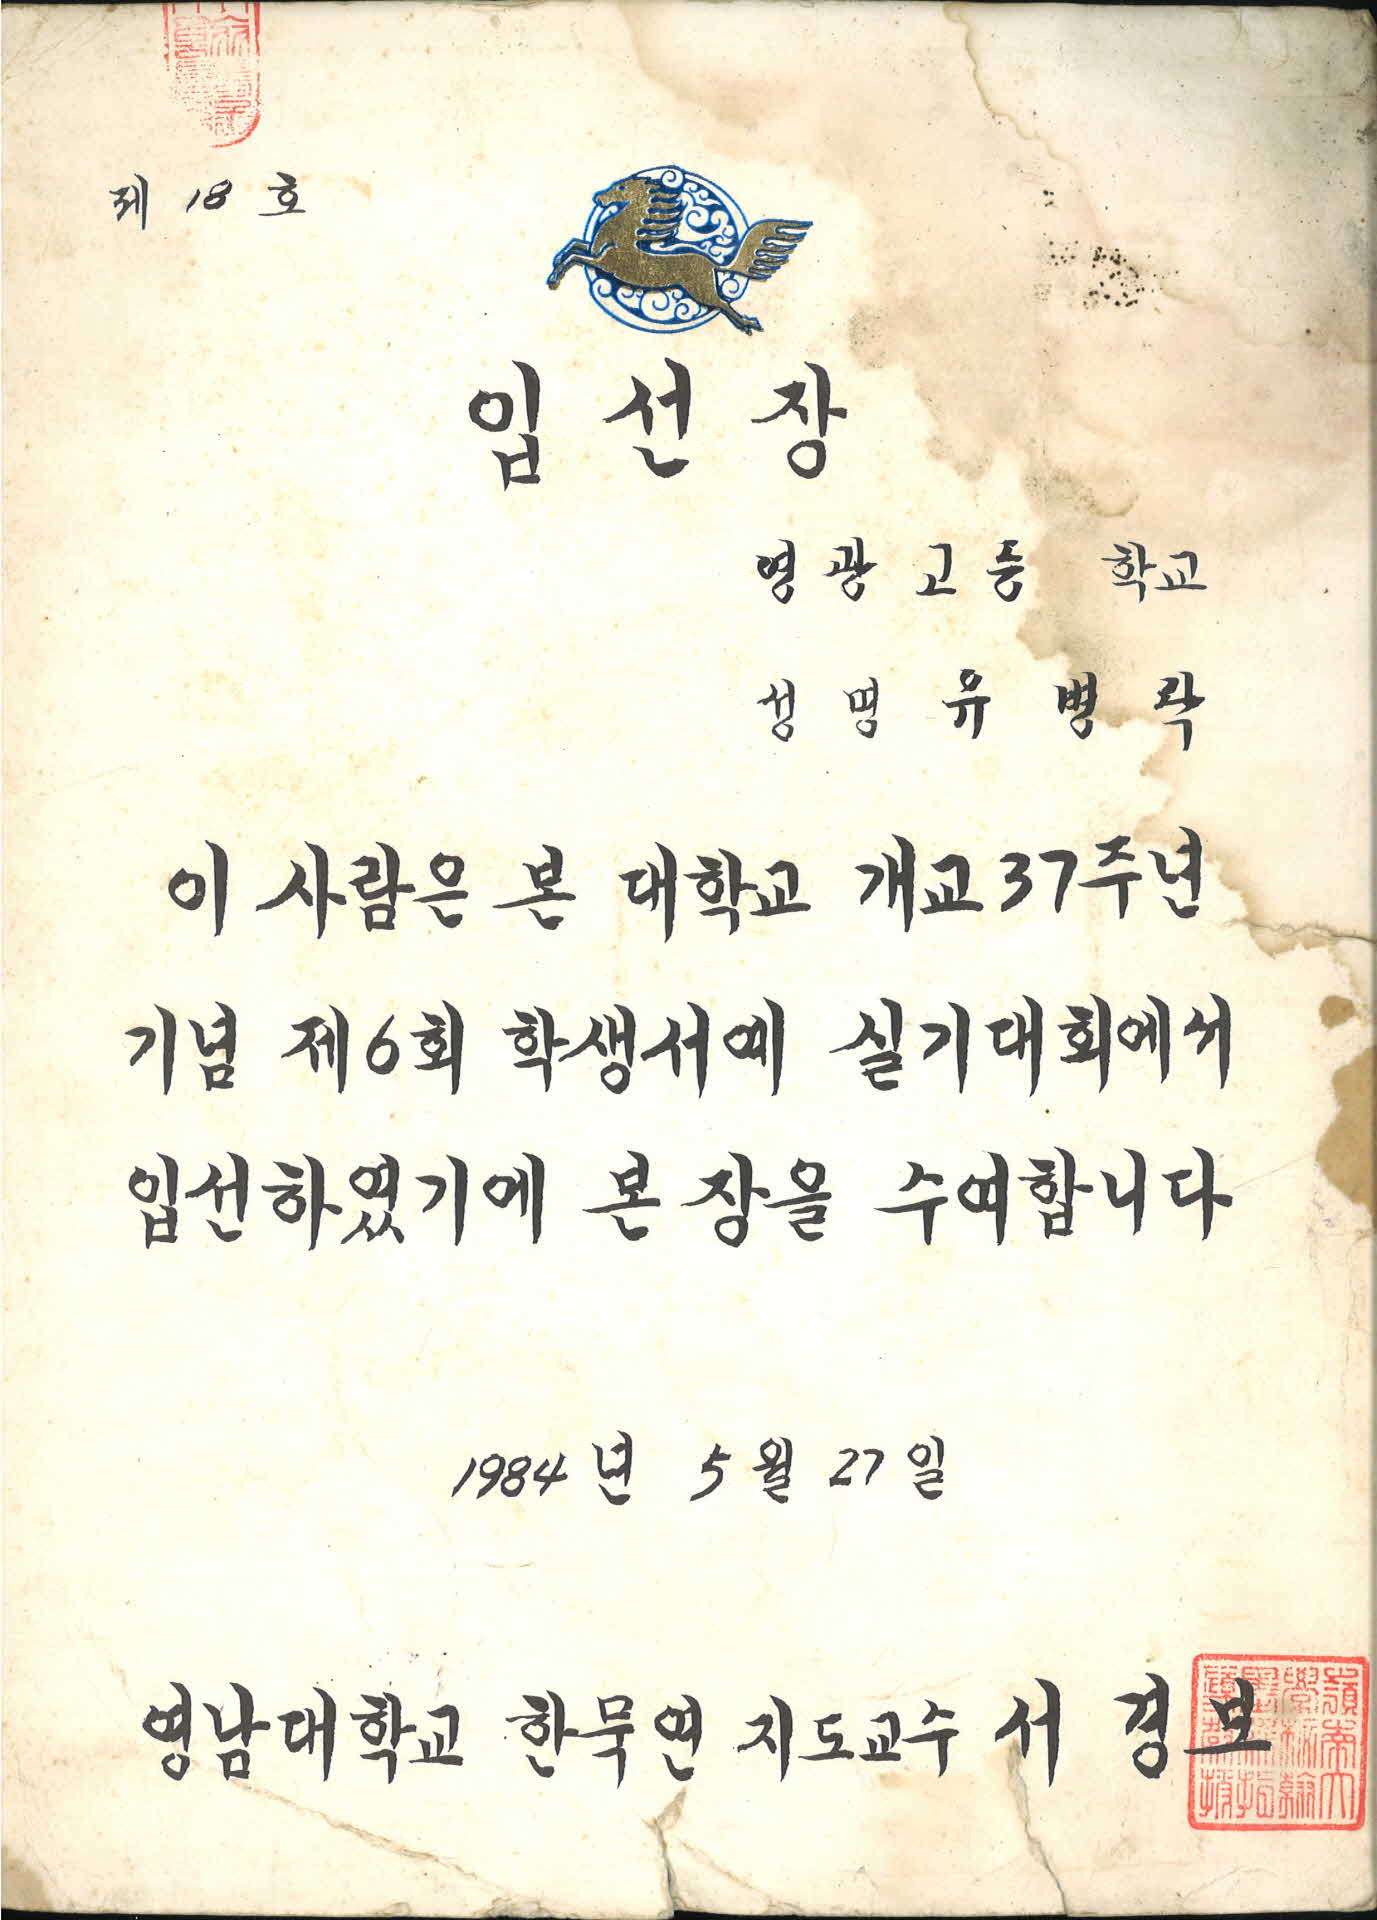 제 18 호
입선장
영광고등 학교
성명 유병락
이 사람은 본 대학교 개교37주년
기념 제6회 학생서예 실기대회에서
입선하였기에 본 장을 수여합니다
1984년 5월 27일
영남대학교 한묵연 지도교수 서경보